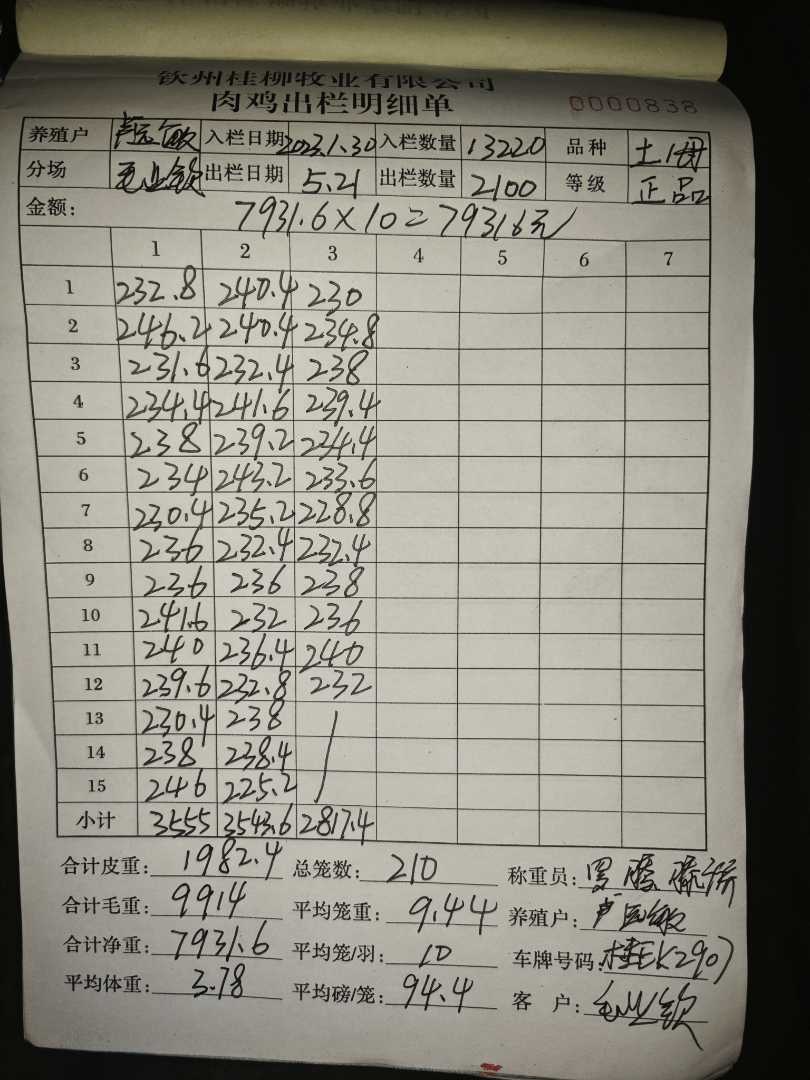 钦州桂柳牧业有限公司
肉鸡出栏明细单 0000838
养殖户 入栏日期 2023.1.30 入栏数量 13220 品种 土1母
分场 毛业钦 出栏日期 5.21 出栏数量 2100 等级 正品
金额: 7931.6×10=79316元
1 2 3 4 5 6 7
1 232.8 240.4 230
2 246.2 240.4 234.8
3 231.6 232.4 238
4 234.4 241.6 239.4
5 238 239.2 234.4
6 234 243.2 233.6
7 230.4 235.2 228.8
8 236 232.4 232.4
9 236 236 238
10 241.6 232 236
11 240 236.4 240
12 239.6 232.8 232
13 230.4 238
14 238 238.4
15 246 225.2
小计 3555 3543.6 2817.4
合计皮重: 1982.4 总笼数: 210 称重员:
合计毛重: 9914 平均笼重: 9.44 养殖户:
合计净重: 7931.6 平均笼/羽: 10 车牌号码: 桂EK2907
平均体重: 3.78 平均磅/笼: 94.4 客户: 毛业钦